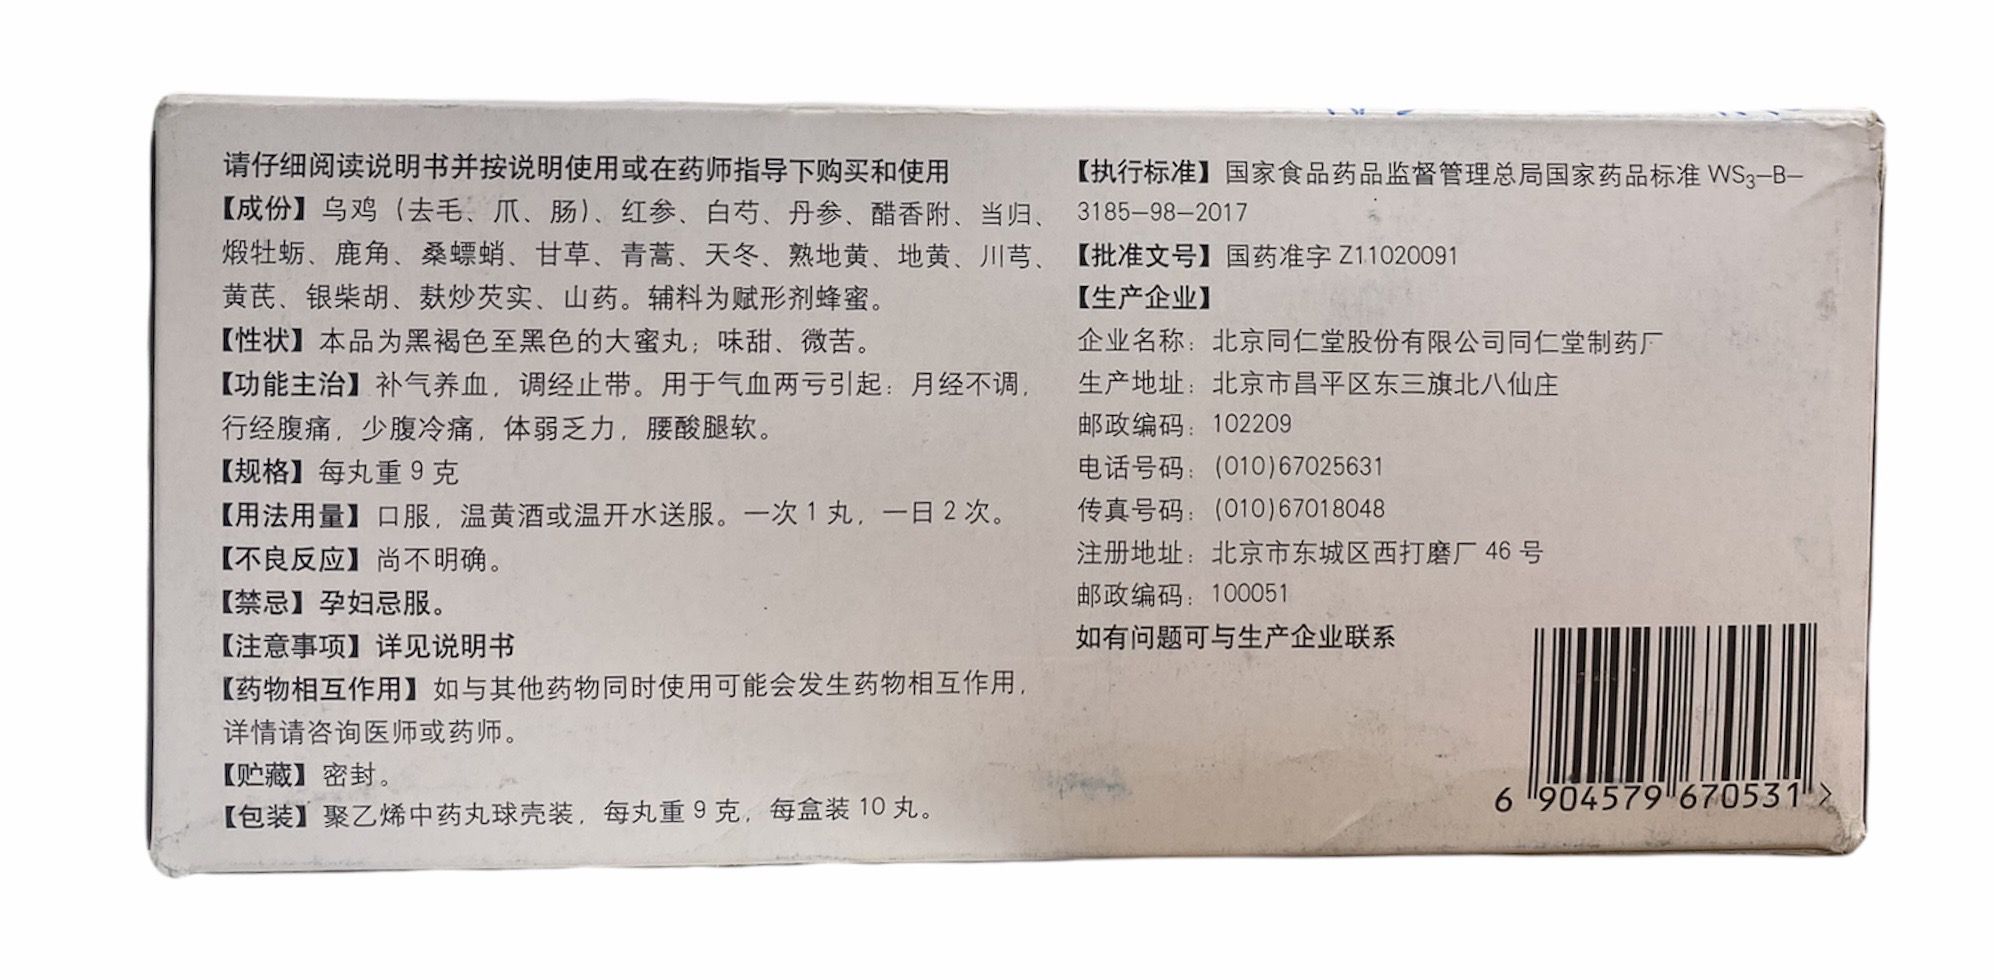 请仔细阅读说明书并按说明使用或在药师指导下购买和使用
【成份】乌鸡（去毛、爪、肠）、红参、白芍、丹参、醋香附、当归、
煅牡蛎、鹿角、桑螵蛸、甘草、青蒿、天冬、熟地黄、地黄、川芎、
黄芪、银柴胡、麸炒芡实、山药。辅料为赋形剂蜂蜜。
【性状】本品为黑褐色至黑色的大蜜丸；味甜、微苦。
【功能主治】补气养血，调经止带。用于气血两亏引起：月经不调，
行经腹痛，少腹冷痛，体弱乏力，腰酸腿软。
【规格】每丸重 9 克
【用法用量】口服，温黄酒或温开水送服。一次 1 丸，一日 2 次。
【不良反应】尚不明确。
【禁忌】孕妇忌服。
【注意事项】详见说明书
【药物相互作用】如与其他药物同时使用可能会发生药物相互作用，
详情请咨询医师或药师。
【贮藏】密封。
【包装】聚乙烯中药丸球壳装，每丸重 9 克，每盒装 10 丸。
【执行标准】国家食品药品监督管理总局国家药品标准 WS₃—B—
3185—98—2017
【批准文号】国药准字 Z11020091
【生产企业】
企业名称：北京同仁堂股份有限公司同仁堂制药厂
生产地址：北京市昌平区东三旗北八仙庄
邮政编码：102209
电话号码：(010)67025631
传真号码：(010)67018048
注册地址：北京市东城区西打磨厂 46 号
邮政编码：100051
如有问题可与生产企业联系
6 904579 670531 >